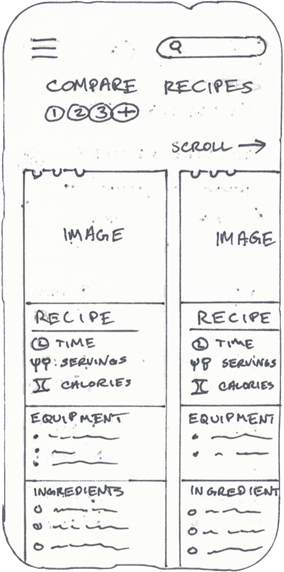 COMPARE RECIPES
1 2 3 +
SCROLL →
IMAGE
RECIPE
TIME
SERVINGS
CALORIES
EQUIPMENT
INGREDIENTS
IMAGE
RECIPE
TIME
SERVINGS
CALORIES
EQUIPMENT
INGREDIENT